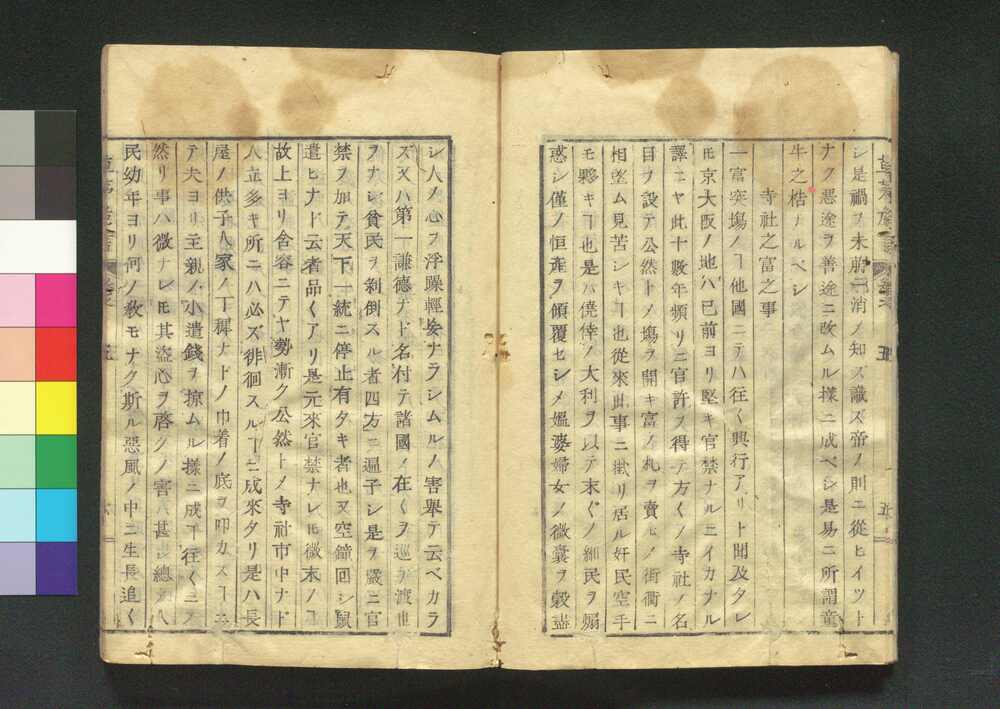 シ是禍ヲ未前ニ消ノ知ズ識ズ帝ノ則ニ從ヒイツト
ナク悪途ヲ善途ニ改ムル様ニ成ベシ是易ニ所謂童
牛之梏ナルベシ
寺社之富之事
一富突塲ノヿ他國ニテハ往〱興行アリト聞及タレ
𪜈京大阪ノ地ハ已前ヨリ堅キ官禁ナルニイカナル
譯ニヤ此十數年頻リニ官許ヲ得テ方〱ノ寺社ノ名
目ヲ設テ公然トノ塲ヲ開キ富ノ札ヲ賣モノ街衢ニ
相望ム見苦シキヿ也從來此事ニ携リ居ル奸民空手
モ夥キヿ也是ハ僥倖ノ大利ヲ以テ末〱ノ細民ヲ煽
惑シ僅ノ恒產ヲ傾覆セシメ媼婆婦女ノ微嚢ヲ罄盡
シ人ノ心ヲ浮躁輕妄ナラシムルノ害擧テ云ベカラ
ズ又ハ第一謙德ナド名付テ諸國ノ在〱ヲ巡テ渡世
ヲナシ貧民ヲ剝倒スル者四方ニ遍子シ是ヲ嚴ニ官
禁ヲ加テ天下一統ニ停止有タキ者也又空鐘回シ鼠
遣ヒナド云者品〱アリ是元來官禁ナレ𪜈微末ノヿ
故上ヨリ含容ニテヤ勢漸ク公然トノ寺社市中ナド
人立多キ所ニハ必ズ徘徊スルヿニ成來タリ是ハ長
屋ノ供子人家ノ丁穉ナドノ巾着ノ底ヲ叩カスヿニ
テ夫ヨリ主親ノ小遣錢ヲ掠ムル様ニ成ヿ往〱ニア
然リ事ハ微ナレ𪜈其盗心ヲ啓クノ害ハ甚シ總ジ八
民幼年ヨリ何ノ敎モナク斯ル惡風ノ中ニ生長追〱